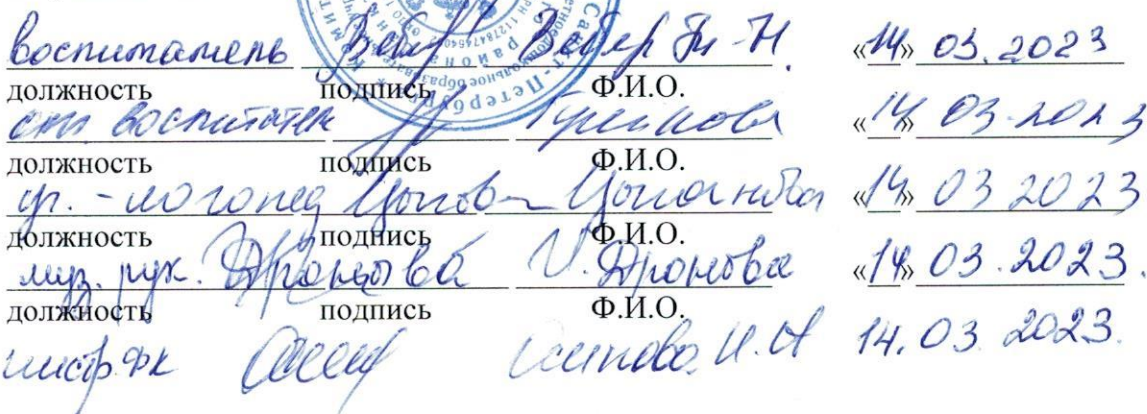 воспитатель Вебер Т. Н. «14» 03.2023
должность подпись Ф.И.О.
ст воспитатель «14» 03.2023
должность подпись Ф.И.О.
уч.-логопед «14» 03 2023
должность подпись Ф.И.О.
муз. рук. Дронова И. Дронова «14» 03.2023.
должность подпись Ф.И.О.
инстр. ФК Осипова И.А 14.03 2023.